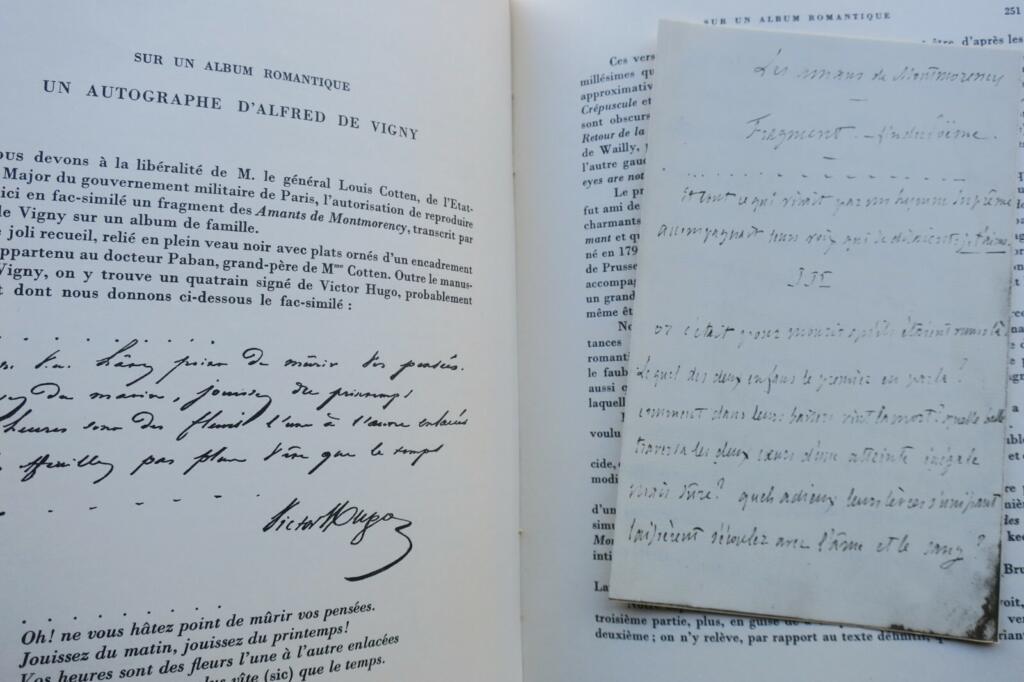 SUR UN ALBUM ROMANTIQUE
UN AUTOGRAPHE D'ALFRED DE VIGNY
ous devons à la libéralité de M. le général Louis Cotten, de l'Etat-
Major du gouvernement militaire de Paris, l'autorisation de reproduire
ici en fac-similé un fragment des Amants de Montmorency, transcrit par
de Vigny sur un album de famille.
joli recueil, relié en plein veau noir avec plats ornés d'un encadrement
appartenu au docteur Paban, grand-père de Mme Cotten. Outre le manus-
Vigny, on y trouve un quatrain signé de Victor Hugo, probablement
t dont nous donnons ci-dessous le fac-similé :
. . . . . . . . . .
point de mûrir vos pensées.
du matin, jouissez du printemps!
heures sont des fleurs l'une à l'autre enlacées
pas plus vîte que le temps
Victor Hugo
. . . . . . . . . .
Oh! ne vous hâtez point de mûrir vos pensées.
Jouissez du matin, jouissez du printemps!
Vos heures sont des fleurs l'une à l'autre enlacées
plus vîte (sic) que le temps.
SUR UN ALBUM ROMANTIQUE
251
être, d'après les
Ces vers
millésimes qu
approximativ
Crépuscule et
sont obscurs
Retour de la
de Wailly,
l'autre gau
eyes are not
Le pr
fut ami de
charmants
mant et qu
né en 179
de Prusse
accompag
un grand
même êt
No
tances
romanti
le faub
aussi c
laquell
voulu
cide,
modi
d'un
simu
Mo
inti
La
Les amans de Montmorency
Fragment. – fin du poëme.
. . . . . . . . . .
et tout ce qui vivait par un hymne suprême
accompagnait leurs voix qui se disaient: je t'aime.
III
or c'était pour mourir qu'ils étaient venus là.
Lequel des deux enfans le premier en parla?
comment dans leurs baisers vint la mort? quelle balle
traversa les deux cœurs d'une atteinte inégale
mais sûre? quels adieux leurs lèvres s'unissant
laissèrent s'écouler avec l'âme et le sang?
troisième partie, plus, en guise de
deuxième ; on n'y relève, par rapport au texte définitif,